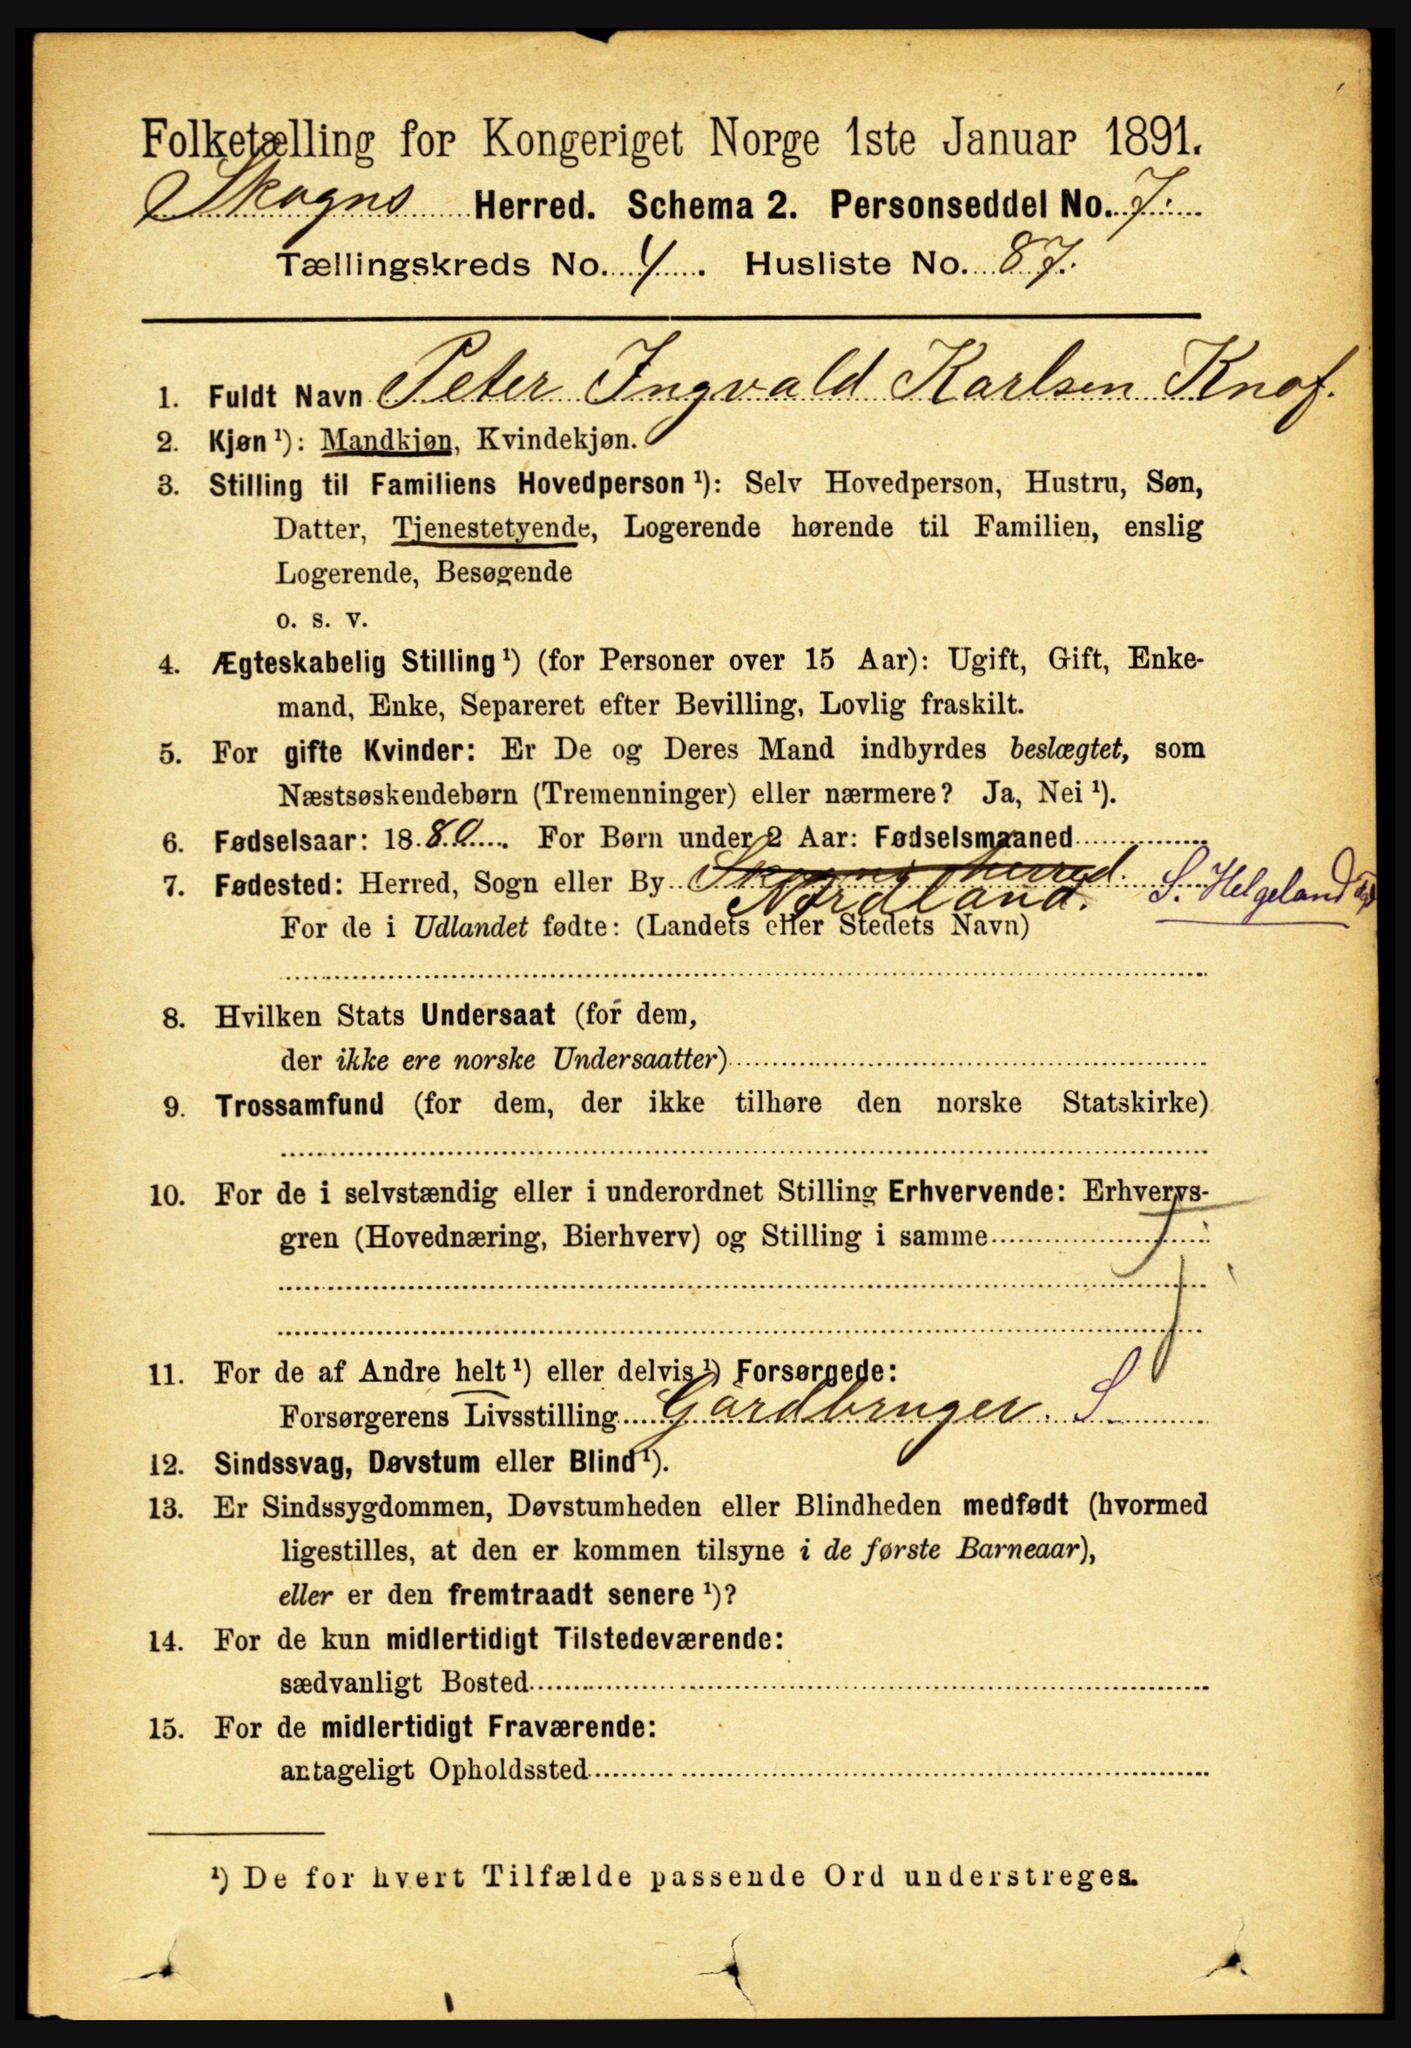 Folketælling for Kongeriget Norge 1ste Januar 1891.
Skogns Herred. Schema 2. Personseddel No. 7.
Tællingskreds No. 4. Husliste No. 87.
1. Fuldt Navn Peter Ingvald Karlsen Knof.
2. Kjøn ¹): Mandkjøn, Kvindekjøn.
3. Stilling til Familiens Hovedperson ¹): Selv Hovedperson, Hustru, Søn,
Datter, Tjenestetyende, Logerende hørende til Familien, enslig
Logerende, Besøgende
o. s. v.
4. Ægteskabelig Stilling ¹) (for Personer over 15 Aar): Ugift, Gift, Enke-
mand, Enke, Separeret efter Bevilling, Lovlig fraskilt.
5. For gifte Kvinder: Er De og Deres Mand indbyrdes beslægtet, som
Næstsøskendebørn (Tremenninger) eller nærmere? Ja, Nei ¹).
6. Fødselsaar: 1880. For Børn under 2 Aar: Fødselsmaaned
7. Fødested: Herred, Sogn eller By Skogns herred. S. Helgeland
Nordland.
For de i Udlandet fødte: (Landets eller Stedets Navn)
8. Hvilken Stats Undersaat (for dem,
der ikke ere norske Undersaatter)
9. Trossamfund (for dem, der ikke tilhøre den norske Statskirke)
10. For de i selvstændig eller i underordnet Stilling Erhvervende: Erhvervs-
gren (Hovednæring, Bierhverv) og Stilling i samme
11. For de af Andre helt ¹) eller delvis ¹) Forsørgede:
Forsørgerens Livsstilling Gårdbruger. S
12. Sindssvag, Døvstum eller Blind ¹).
13. Er Sindssygdommen, Døvstumheden eller Blindheden medfødt (hvormed
ligestilles, at den er kommen tilsyne i de første Barneaar),
eller er den fremtraadt senere ¹)?
14. For de kun midlertidigt Tilstedeværende:
sædvanligt Bosted
15. For de midlertidigt Fraværende:
antageligt Opholdssted
¹) De for hvert Tilfælde passende Ord understreges.